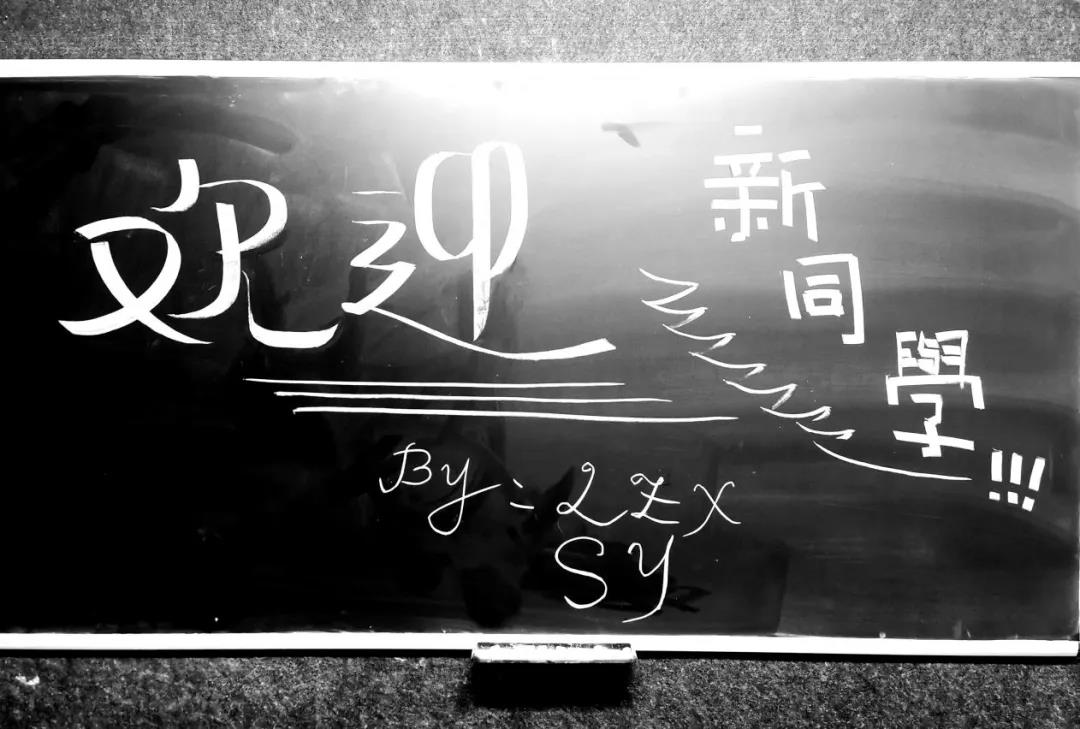 欢迎
新同學!!!
By: LZX
SY